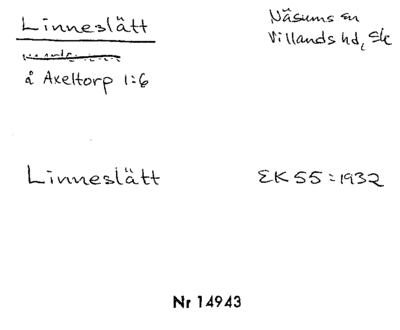 Linneslätt
Näsums sn
Villands hd, Sk
å Axeltorp 1:6
Linneslätt
EK 55:1932
Nr 14943